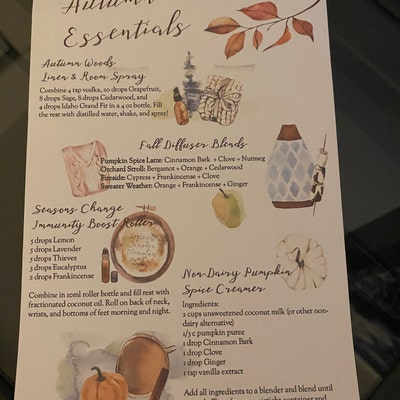 Autumn
Essentials
Autumn Woods
Linen & Room Spray
Combine 4 tsp vodka, 20 drops Grapefruit,
8 drops Sage, 8 drops Cedarwood, and
4 drops Idaho Grand Fir in a 4 oz bottle. Fill
the rest with distilled water, shake, and spray!
Fall Diffuser Blends
Pumpkin Spice Latte: Cinnamon Bark + Clove + Nutmeg
Orchard Stroll: Bergamot + Orange + Cedarwood
Fireside: Cypress + Frankincense + Clove
Sweater Weather: Orange + Frankincense + Ginger
Seasons Change
Immunity Boost Roller
5 drops Lemon
5 drops Lavender
5 drops Thieves
3 drops Eucalyptus
2 drops Frankincense
Combine in 10ml roller bottle and fill rest with
fractionated coconut oil. Roll on back of neck,
wrists, and bottoms of feet morning and night.
Non-Dairy Pumpkin
Spice Creamer
Ingredients:
2 cups unsweetened coconut milk (or other non-
dairy alternative)
1/3 c pumpkin puree
1 drop Cinnamon Bark
1 drop Clove
1 drop Ginger
1 tsp vanilla extract
Add all ingredients to a blender and blend until
container and